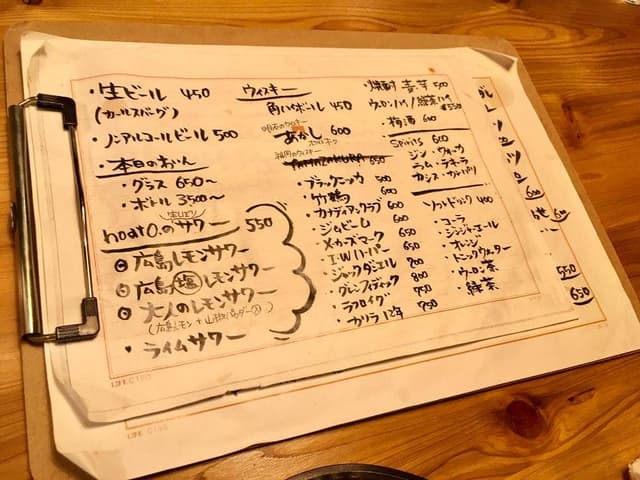 ・生ビール 450
(カールスバーグ)
・ノンアルコールビール 500
・本日のわいん
・グラス 650〜
・ボトル 3500〜
hoatO.のサワー 550
◎広島レモンサワー
◎広島塩レモンサワー
◎大人のレモンサワー
(広島レモン+山椒パウダー入)
・ライムサワー
ウィスキー
角ハイボール 450
明石のウィスキー
あかし 600
ホワイトオーク
福岡のウィスキー
YAMAZAKURA 650
・ブラックニッカ 500
・竹鶴
・カナディアンクラブ 600
・ジムビーム 600
・メーカーズマーク 650
・I.W.ハーパー
・ジャックダニエル 800
・グレンフィディック 800
・ラフロイグ 750
・カリラ12年 950
・焼酎 青芋 500
ウーロンハイ/緑茶ハイ 550
・梅酒 600
Spirits 600
ジン・ウォッカ
ラム・テキーラ
カシス・カンパリ
ソフトドリンク 400
・コーラ
・ジンジャーエール
・オレンジ
・トニックウォーター
・ウーロン茶
・緑茶
600
600
550
650
LIFE C155
LIFE C155